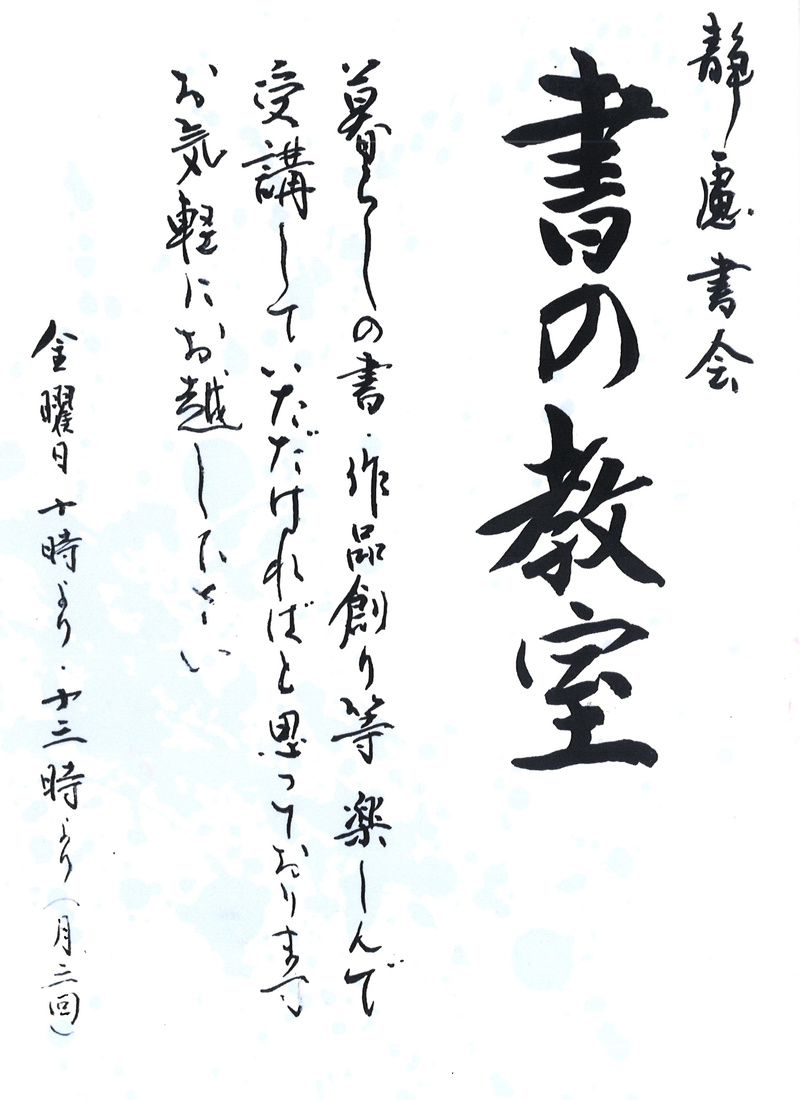 静慮書会
書の教室
暮らしの書・作品創り等楽しんで
受講していただければと思っております
お気軽にお越し下さい
金曜日十時より・十三時より（月三回）